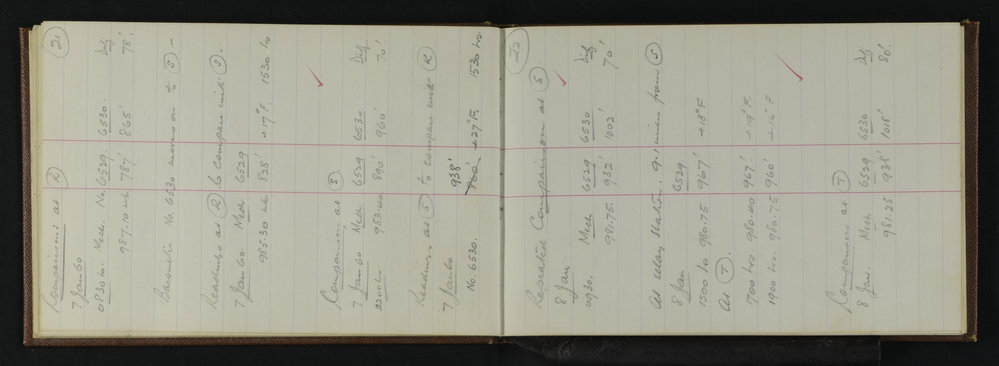 21
Comparisons at R.
7 Jan 60
0830 hr. Mech. No. 6529. 6530. Diff
987.10 mb 787' 865' 78'
Barometer No. 6530 moves on to S –
Readings at R to compare with S –
7 Jan 60 Mech 6529
985.30 mb. 825' +17°F. 1530 hr.
Comparisons at S.
7 Jan 60 Mech. 6529 6530 Diff.
2200 hr. 983.00 890' 960' 70'
Readings at S to compare with R
7 Jan 60 938'
No. 6530. 860' +27°F. 1530 hr.
22
Repeated Comparison at S
8 Jan.
0930. Mech 6529 6530 Diff
981.75. 932' 1002' 70'
At relay station. 9.1 miles from S
8 Jan 6529
1300 hr 980.75 967' +18°F
At T.
1700 hrs. 980.80 967' +19°F
1900 hrs. 980.75 960' +16°F
Comparison at T
8 Jan. Mech 6529 6530 Diff
981.25 938' 1018' 80'